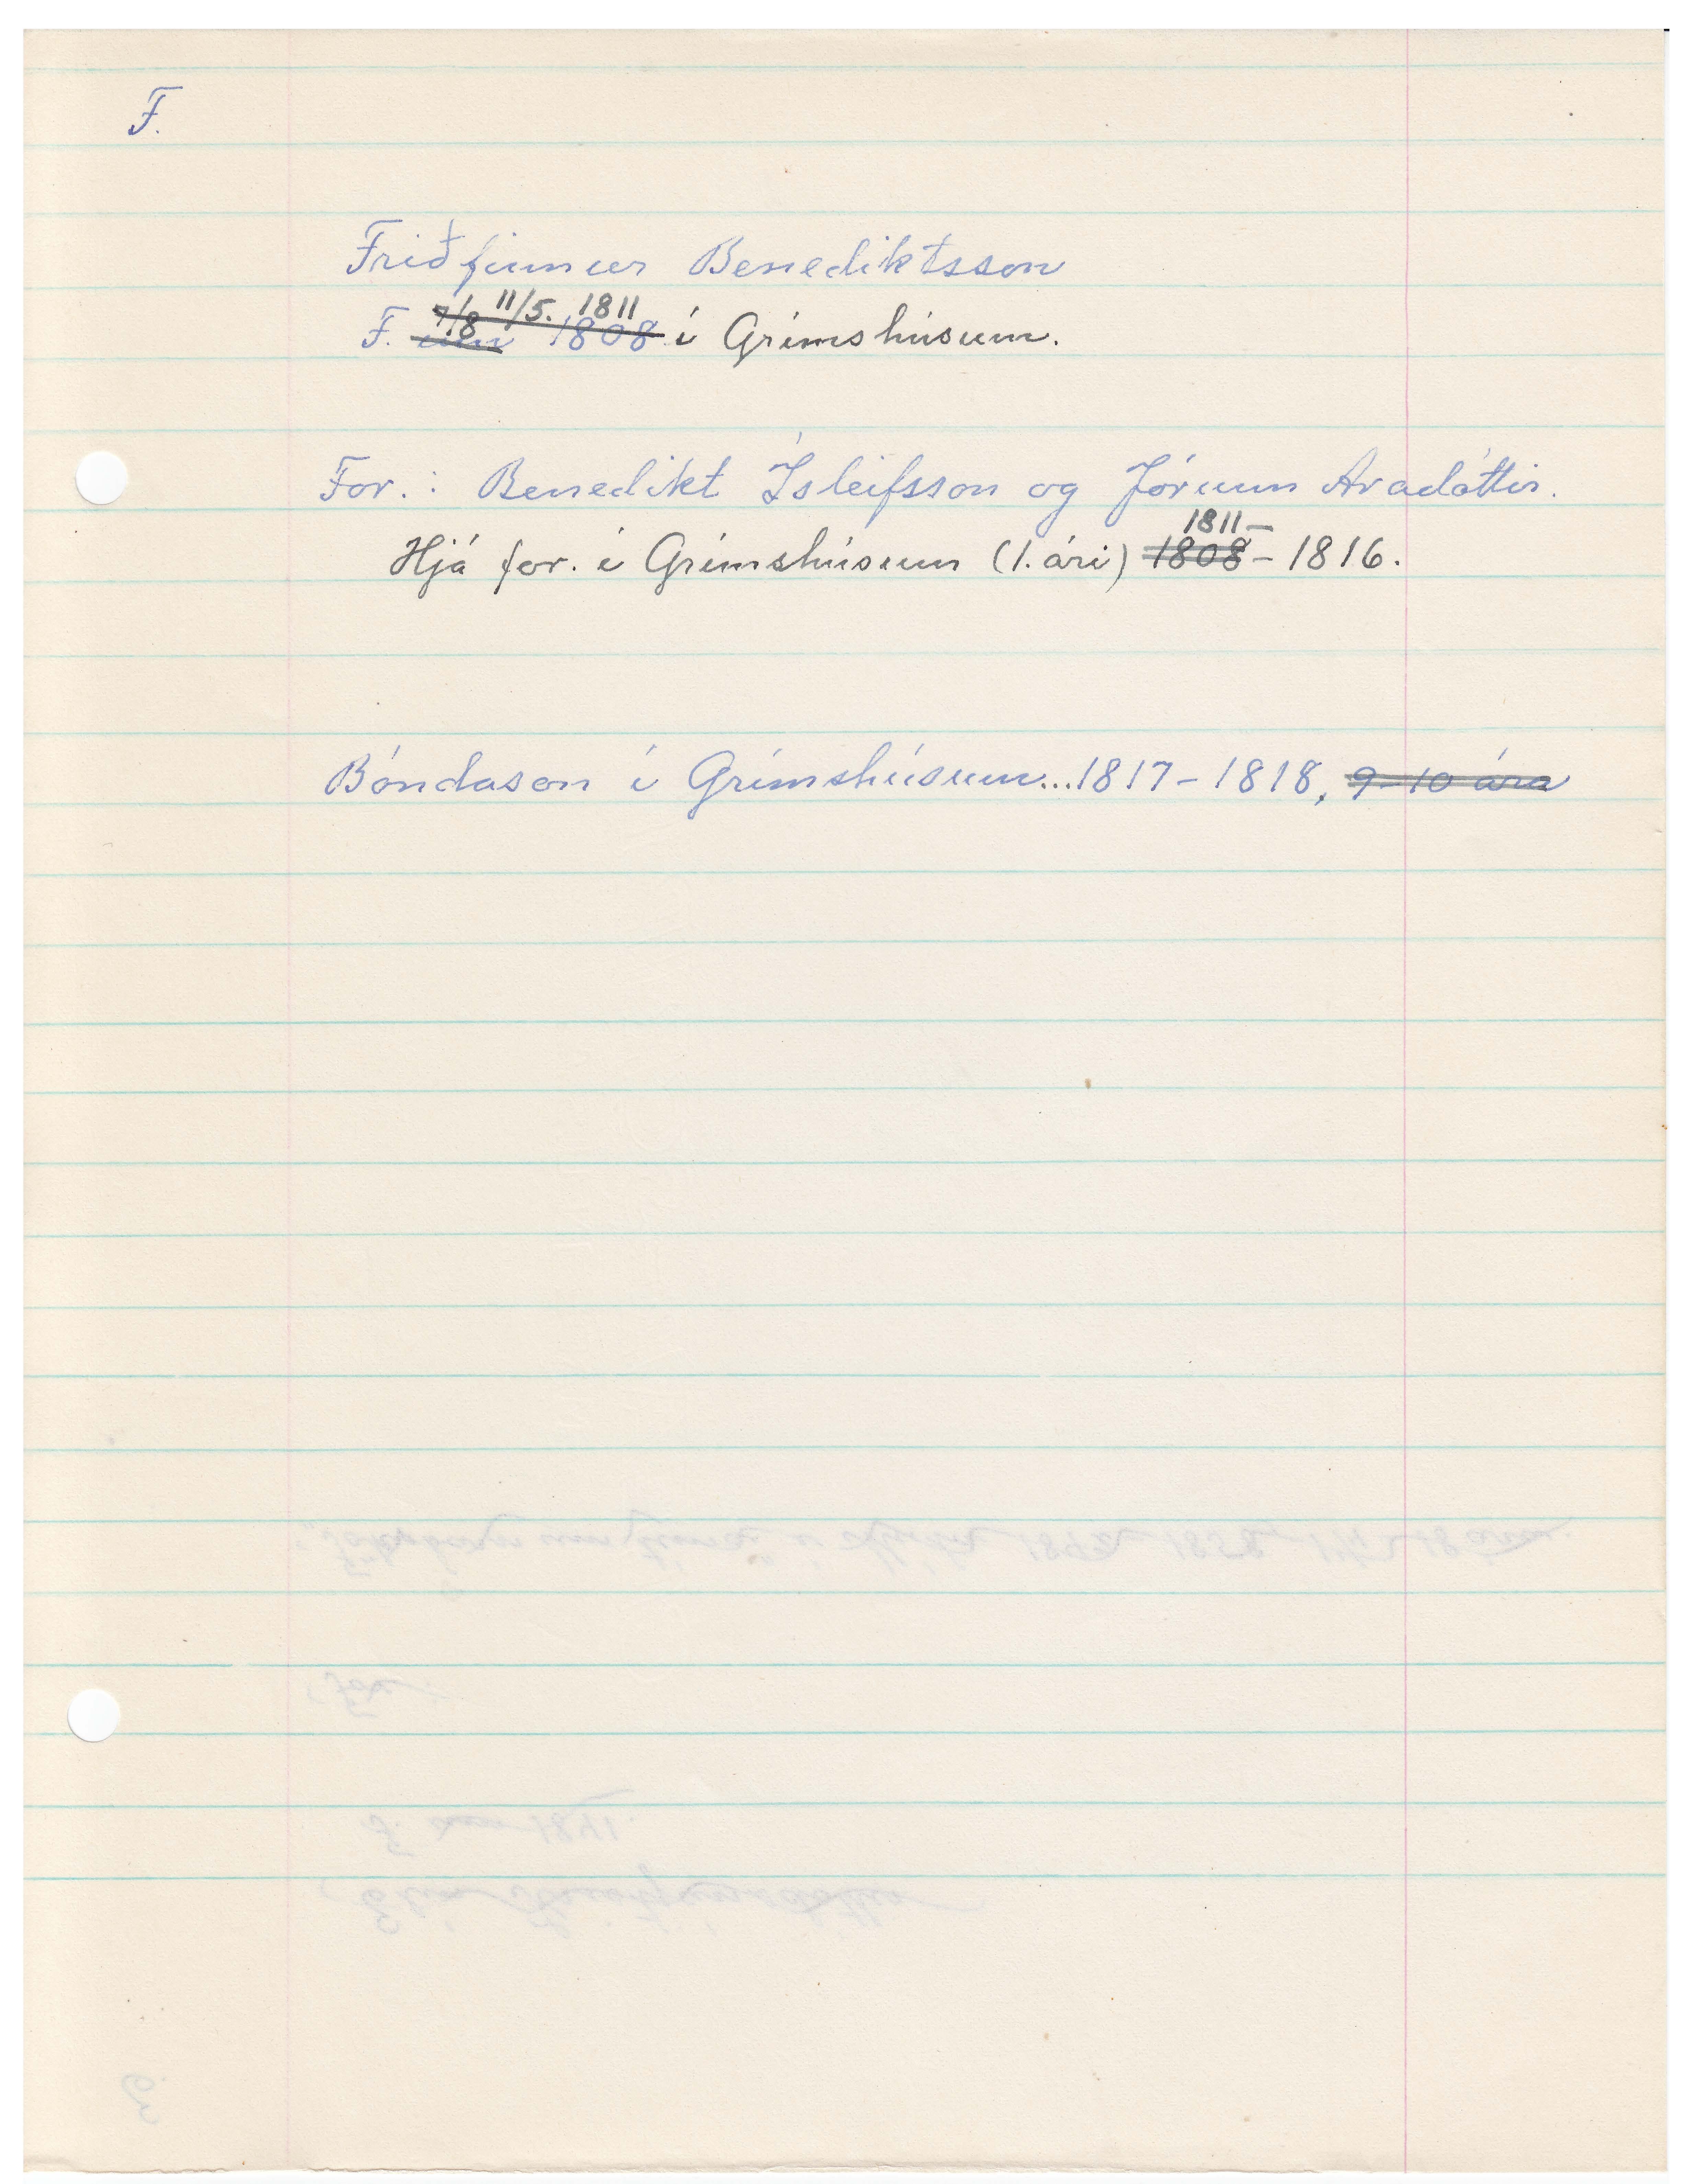 F.
Friðfinnur Benediktsson
7/8 11/5. 1811
F. um 1808 í Grímshúsum.
For.: Benedikt Ísleifsson og Jórunn Aradóttir.
1811-
Hjá for. í Grímshúsum (1. ári) 1808 - 1816.
Bóndason í Grímshúsum...1817-1818, 9-10 ára